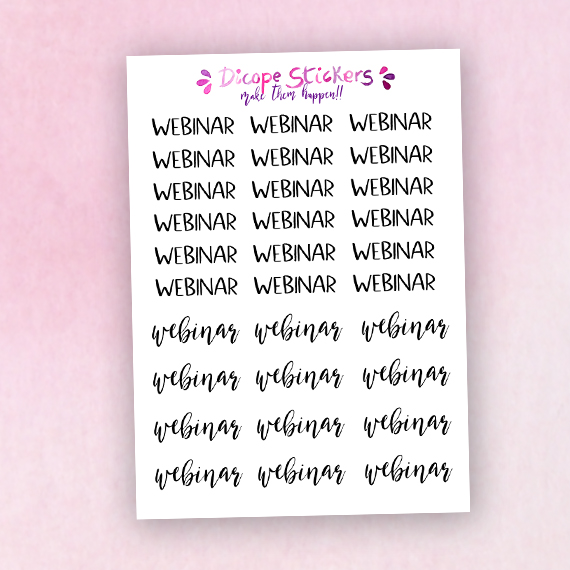 Dicope Stickers
make them happen!!
WEBINAR WEBINAR WEBINAR
WEBINAR WEBINAR WEBINAR
WEBINAR WEBINAR WEBINAR
WEBINAR WEBINAR WEBINAR
WEBINAR WEBINAR WEBINAR
WEBINAR WEBINAR WEBINAR
webinar webinar webinar
webinar webinar webinar
webinar webinar webinar
webinar webinar webinar